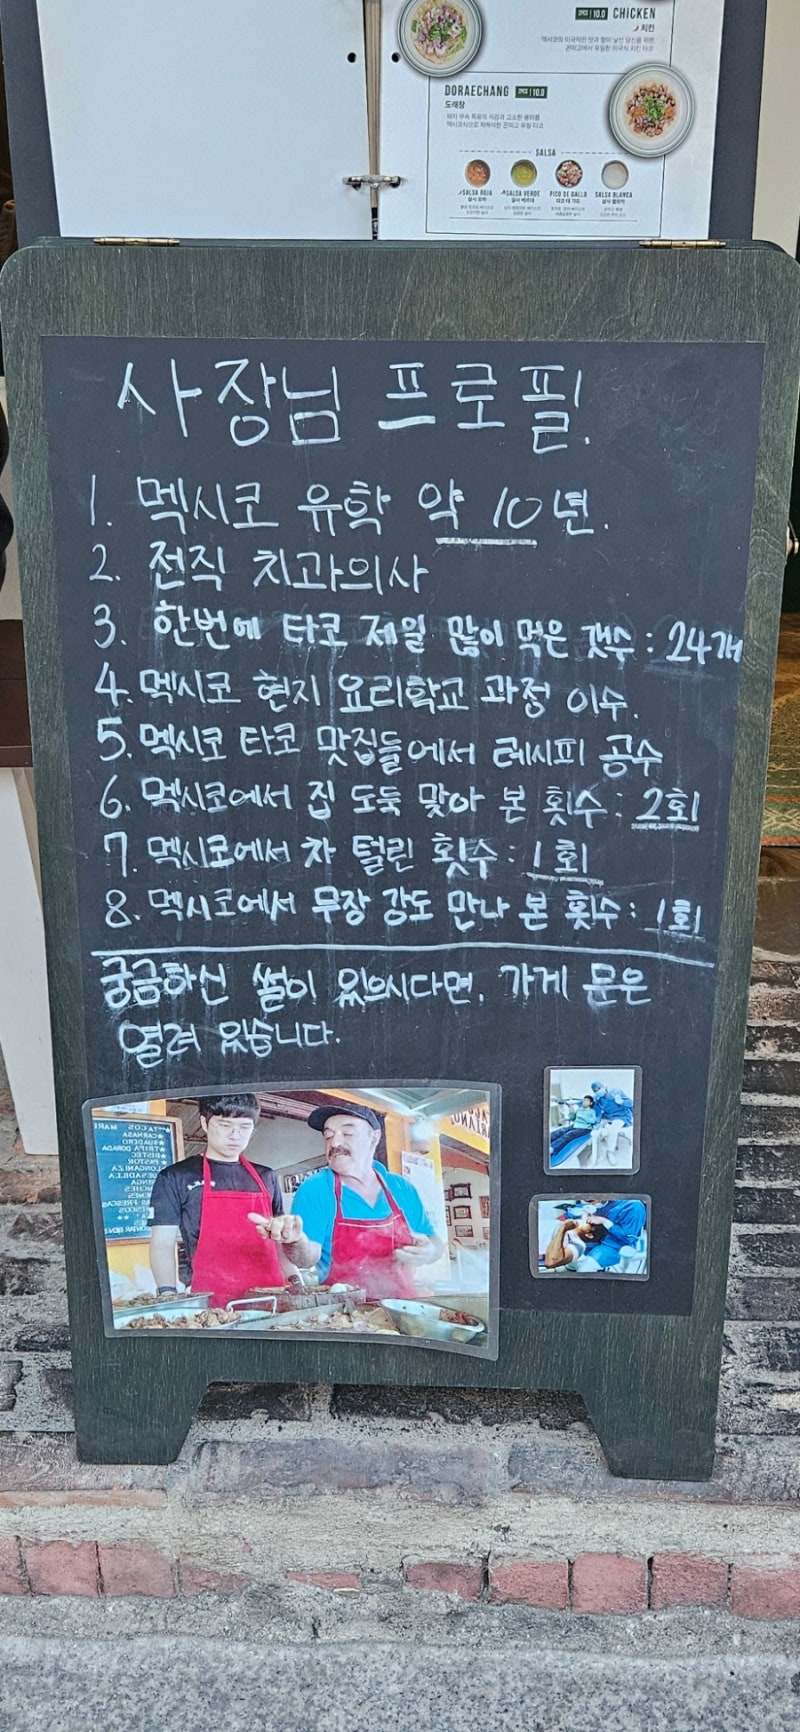 2PCS | 10.0 CHICKEN
치킨
DORAECHANG 2PCS | 10.0
도래창
SALSA
SALSA ROJA
살사 로하
SALSA VERDE
살사 베르데
PICO DE GALLO
피코 데 가요
SALSA BLANCA
살사 블랑카
사장님 프로필.
1. 멕시코 유학 약 10년.
2. 전직 치과의사
3. 한번에 타코 제일 많이 먹은 갯수 : 24개
4. 멕시코 현지 요리학교 과정 이수.
5. 멕시코 타코 맛집들에서 레시피 공수
6. 멕시코에서 집 도둑 맞아 본 횟수 : 2회
7. 멕시코에서 차 털린 횟수 : 1회
8. 멕시코에서 무장 강도 만나 본 횟수 : 1회
궁금하신 썰이 있으시다면, 가게 문은
열려 있습니다.